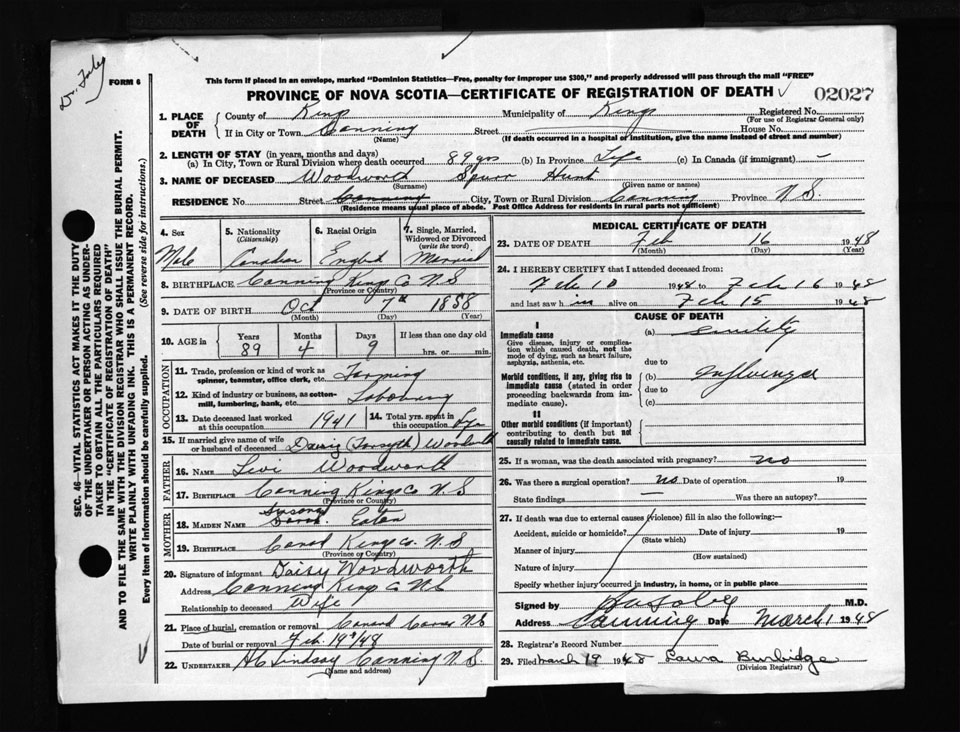 Dr. Foley
FORM 6
This form if placed in an envelope, marked "Dominion Statistics—Free, penalty for improper use $300," and properly addressed will pass through the mail "FREE"
PROVINCE OF NOVA SCOTIA—CERTIFICATE OF REGISTRATION OF DEATH
02027
SEC. 46—VITAL STATISTICS ACT MAKES IT THE DUTY
OF THE UNDERTAKER OR PERSON ACTING AS UNDER-
TAKER TO OBTAIN ALL THE PARTICULARS REQUIRED
IN THE "CERTIFICATE OF REGISTRATION OF DEATH"
AND TO FILE THE SAME WITH THE DIVISION REGISTRAR WHO SHALL ISSUE THE BURIAL PERMIT.
WRITE PLAINLY WITH UNFADING INK. THIS IS A PERMANENT RECORD.
Every item of information should be carefully supplied. (See reverse side for instructions.)
1. PLACE OF DEATH County of Kings Municipality of Kings Registered No.
(For use of Registrar General only)
If in City or Town Canning Street House No.
(Name) (If death occurred in a hospital or institution, give the name instead of street and number)
2. LENGTH OF STAY (in years, months and days)
(a) In City, Town or Rural Division where death occurred 89 yrs (b) In Province Life (c) In Canada (if immigrant) —
3. NAME OF DECEASED Woodworth Spurr Hunt
(Surname) (Given name or names)
RESIDENCE No. Street Canning City, Town or Rural Division Canning Province N.S.
(Residence means usual place of abode. Post Office Address for residents in rural parts not sufficient)
4. Sex
Male
5. Nationality
(Citizenship)
Canadian
6. Racial Origin
English
7. Single, Married,
Widowed or Divorced
(write the word)
Married
8. BIRTHPLACE Canning Kings Co N.S
(Province or Country)
9. DATE OF BIRTH Oct 7th 1858
(Month) (Day) (Year)
10. AGE in Years Months Days If less than one day old
89 4 9 hrs. or min.
OCCUPATION
11. Trade, profession or kind of work as
spinner, teamster, office clerk, etc. Farming
12. Kind of industry or business, as cotton-
mill, lumbering, bank, etc. Laboring
13. Date deceased last worked
at this occupation 1941
14. Total yrs. spent in
this occupation
15. If married give name of wife
or husband of deceased Daisy (Forsyth) Woodworth
FATHER
16. NAME Levi Woodworth
17. BIRTHPLACE Canning Kings Co. N.S
(Province or Country)
MOTHER
18. MAIDEN NAME Eaton
19. BIRTHPLACE Kings Co. N.S
(Province or Country)
20. Signature of informant Daisy Woodworth
Address Canning Kings Co N.S
Relationship to deceased Wife
21. Place of burial, cremation or removal Canard N.S
Date of burial or removal Feb. 19th/48
22. UNDERTAKER H C Lindsay Canning N.S.
(Name and address)
MEDICAL CERTIFICATE OF DEATH
23. DATE OF DEATH Feb 16 1948
(Month) (Day) (Year)
24. I HEREBY CERTIFY that I attended deceased from:
Feb 10 1948 to Feb 16 1948
and last saw him alive on Feb 15 1948
CAUSE OF DEATH
I
Immediate cause (a) Senility
Give disease, injury or complica-
tion which caused death, not the
mode of dying, such as heart failure,
asphyxia, asthenia, etc.
due to
Morbid conditions, if any, giving rise to
immediate cause (stated in order
proceeding backwards from im-
mediate cause).
(b) Influenza
due to
(c)
II
Other morbid conditions (if important)
contributing to death but not
causally related to immediate cause.
25. If a woman, was the death associated with pregnancy? no
26. Was there a surgical operation? no Date of operation 19
State findings — Was there an autopsy?
27. If death was due to external causes (violence) fill in also the following:—
Accident, suicide or homicide? Date of injury 19
(State which)
Manner of injury
(How sustained)
Nature of injury
Specify whether injury occurred in industry, in home, or in public place
Signed by M.D.
Address Canning Date March 1 1948
28. Registrar's Record Number
29. Filed March 19 1948 Laura Burbidge
(Division Registrar)